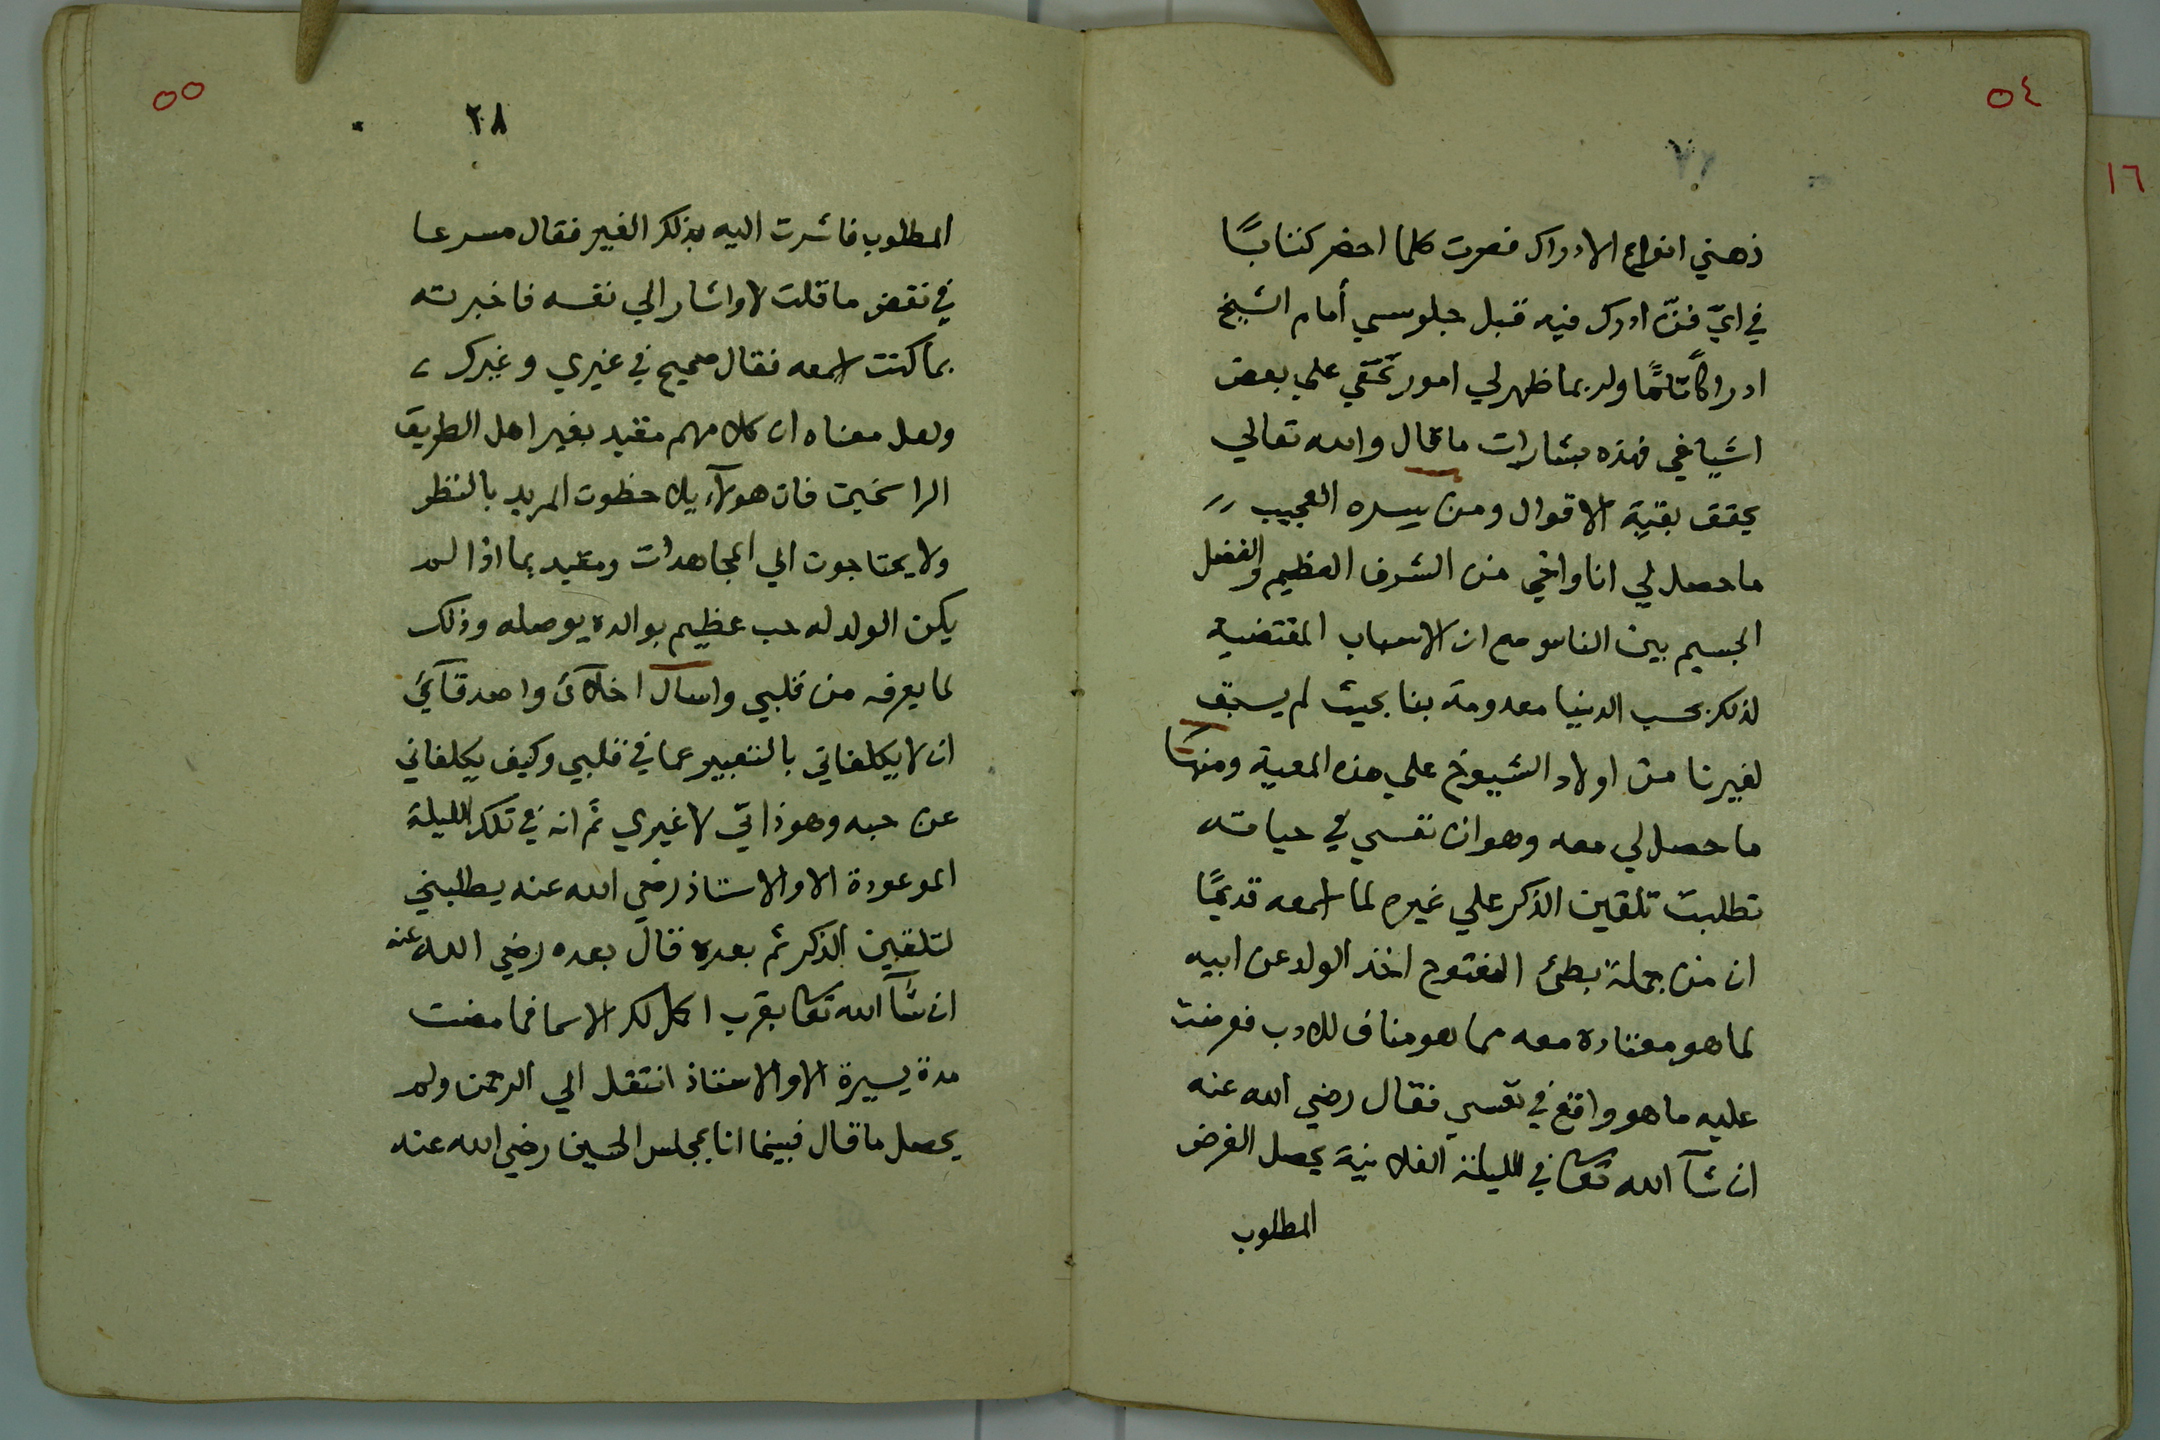 ٥٤
ذهني انواع الادراك فصرت كلما احضر كتابًا
في ايّ فنّ ادرك فيه قبل جلوسي أمام الشيخ
ادراكًا تامًّا ولربما ظهر لي امور تخفي علي بعض
اشياخي فهذه بشارات ما قال والله تعالي
يحقق بقية الاقوال ومن سره العجيب
ما حصل لي انا واخي من الشرف العظيم والفضل
الجسيم بين الناس مع ان الاسباب المقتضية
لذلك بحسب الدنيا معدومة بنا بحيث لم يسبق
لغيرنا من اولاد الشيوخ علي هذه المعية ومنها
ما حصل لي معه وهو ان نفسي في حياته
تطلبت تلقين الذكر علي غيره لما اسمعه قديمًا
ان من جملة بطئ الفتوح اخذ الولد عن ابيه
لما هو معتاده معه مما هو مناف للادب فعرضت
عليه ما هو واقع في نفسي فقال رضي الله عنه
ان شآ الله تعا في الليلة الفلانية يحصل الغرض
المطلوب
١٦
٥٥
٢٨
المطلوب فاشرت اليه بذلك الغير فقال مسرعا
في نقض ما قلت لا واشار الي نفسه فاخبرته
بما كنت اسمعه فقال صحيح في غيري وغيرك
ولعل معناه ان كلامهم مقيد بغير اهل الطريق
الراسخين فان هولآء يلاحظون المريد بالنظر
ولا يحتاجون الي المجاهدات ومقيد بما اذا لم
يكن الولد له حب عظيم بوالده يوصله وذلك
لما يعرفه من قلبي واسال اخلائ واصدقآئي
ان لا يكلفاني بالتعبير عما في قلبي وكيف يكلفاني
عن حبه وهو ذاتي لا غيري ثم انه في تلك الليلة
الموعودة الا والاستاذ رضي الله عنه يطلبني
لتلقين الذكر ثم بعده قال بعده رضي الله عنه
ان شآ الله تعا بقرب اكمل لك الاسما فما مضت
مدة يسيرة الا والاستاذ انتقل الي الرحمن ولم
يحصل ما قال فبينما انا بمجلس الحسين رضي الله عنه